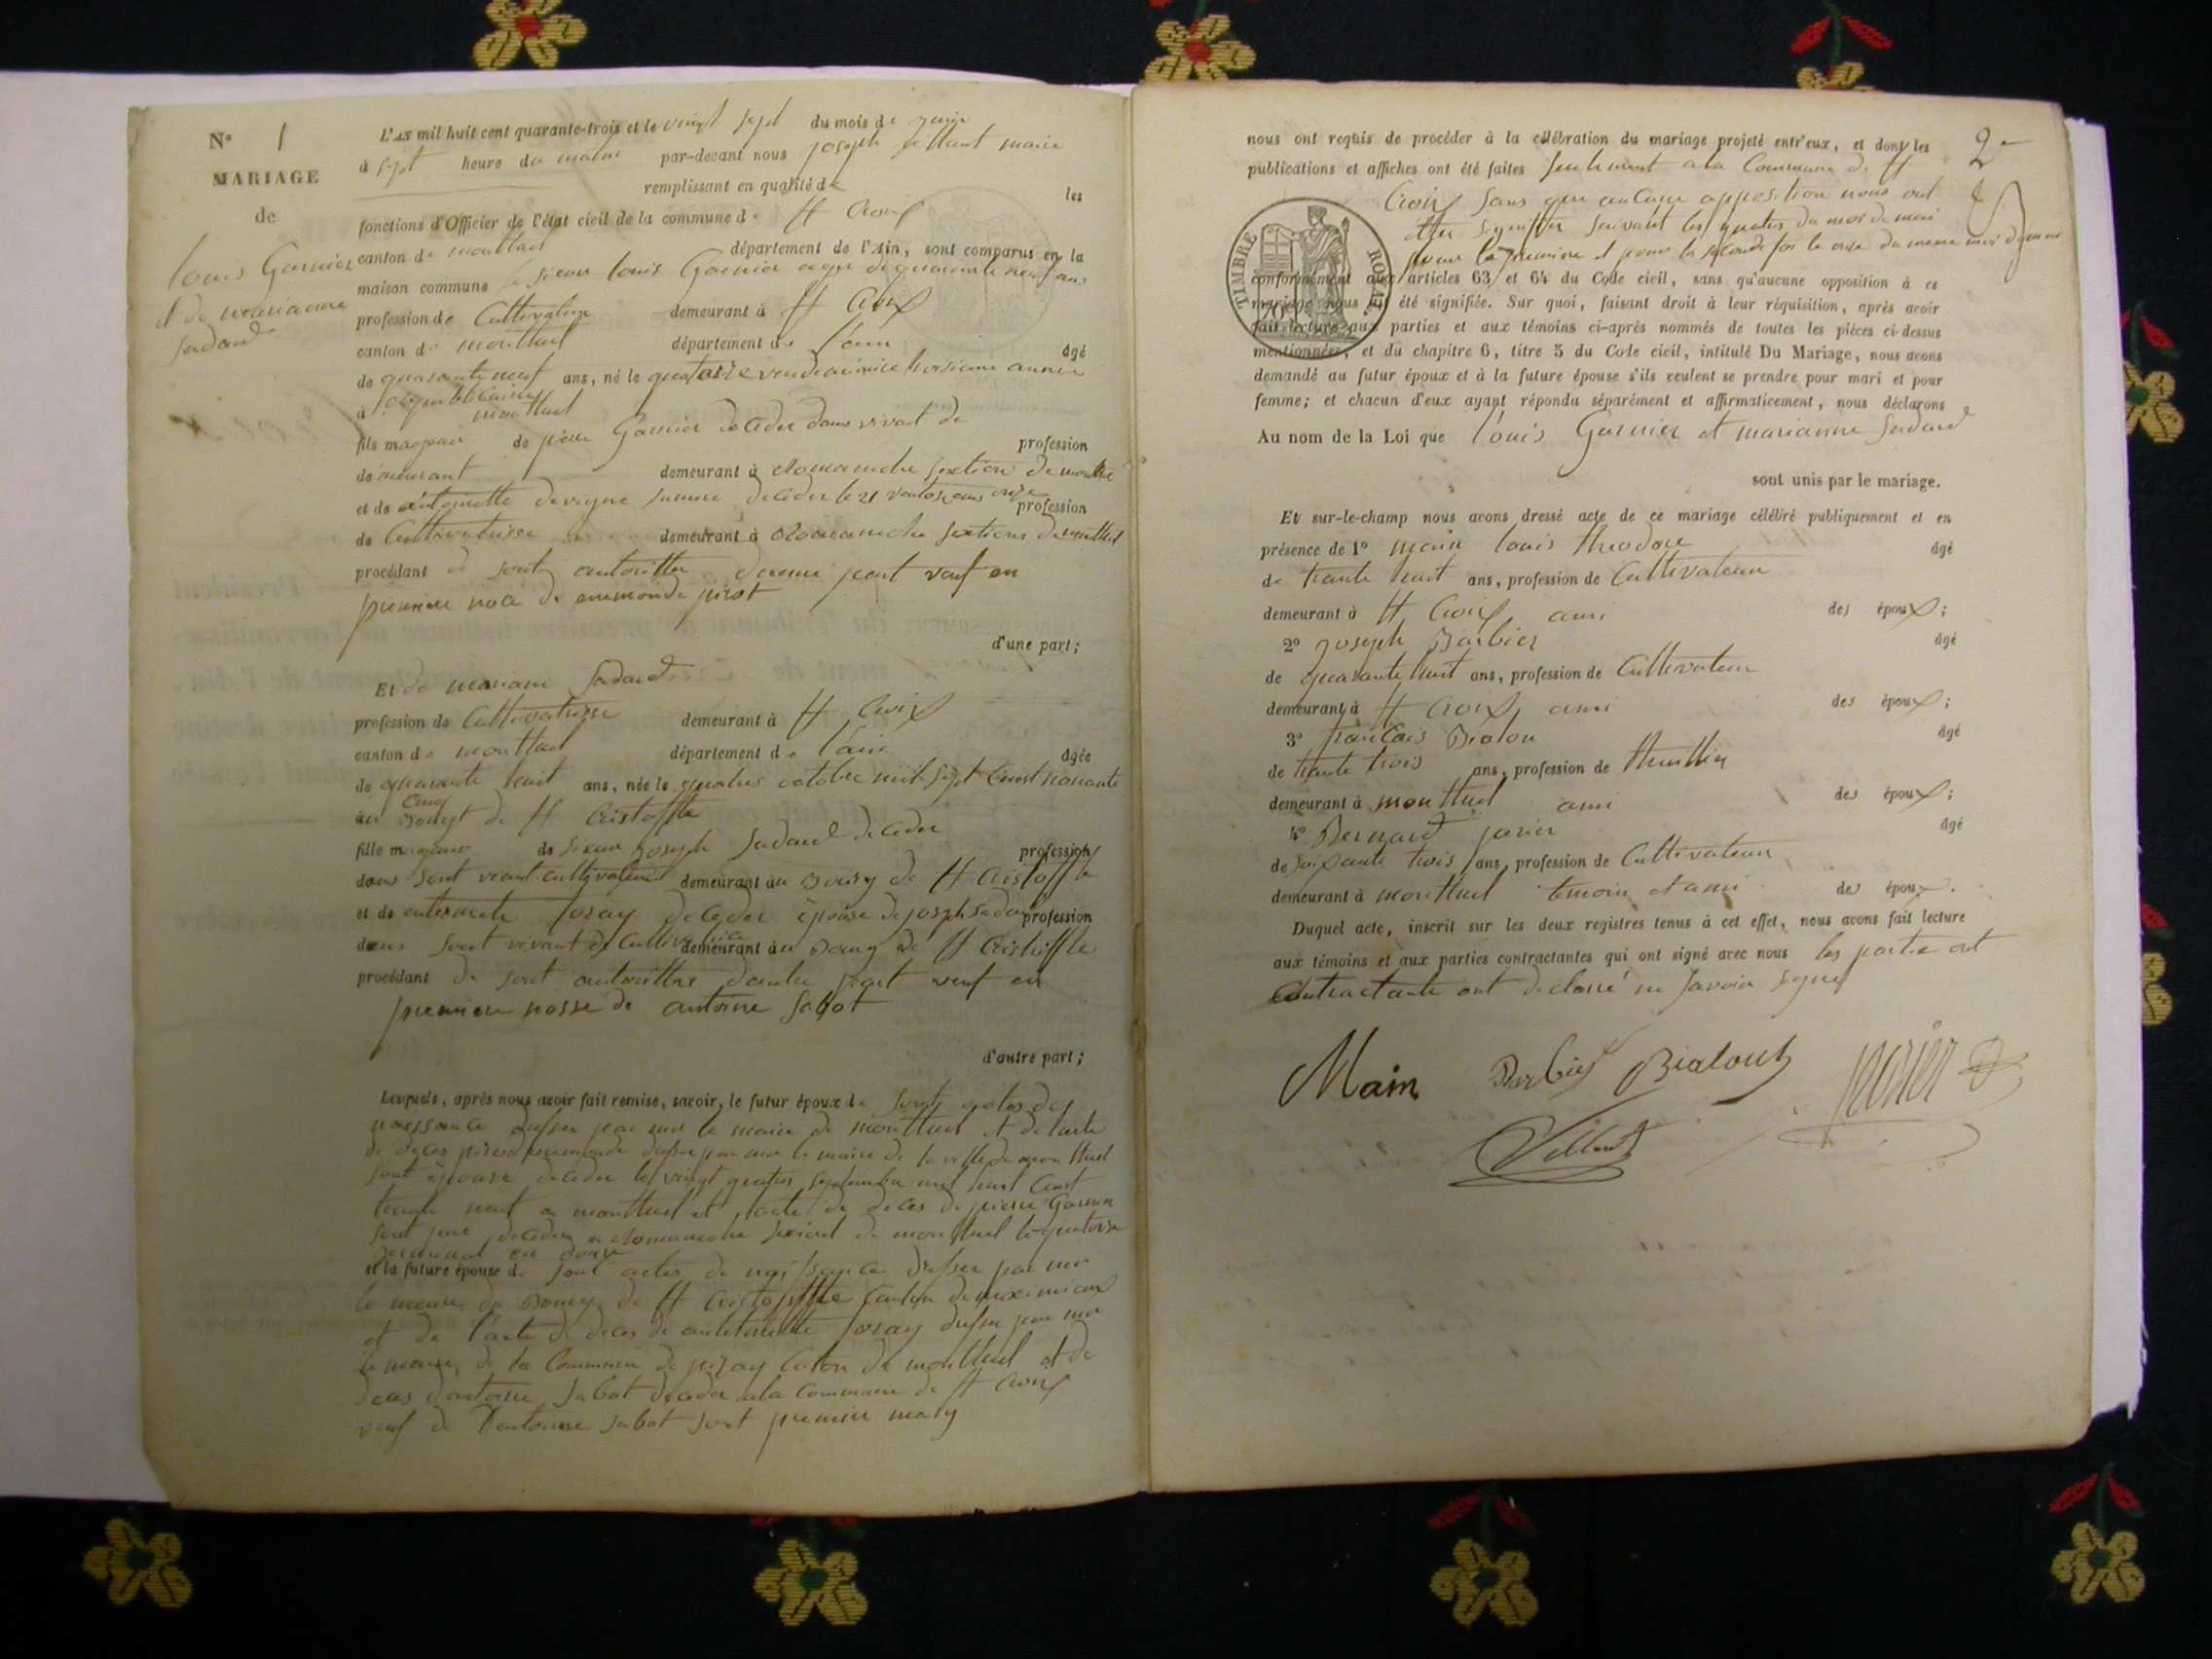 N° 1
MARIAGE
de
louis Garnier
et de marianne
Sadard
L'AN mil huit cent quarante-trois et le vingt sept du mois de
à sept heure du matin par-devant nous joseph villant maire
remplissant en qualité de les
fonctions d'Officier de l'état civil de la commune de St Croix
canton de montluel département de l'Ain, sont comparus en la
maison commune le sieur louis Garnier agé de quarante neuf ans
profession de Cultivateur demeurant à St Croix
canton de montluel département de l'ain âgé
de quarante neuf ans, né le quatorze vendemiaire troisieme année
republicaine
à montluel
fils majeur de pierre Garnier deceder dans vivant de profession
demeurant demeurant à Romaneche section de montluel
et de antoinette devigne deceder le 21 ventose ans onze profession
de Cultivatrisse demeurant à Romaneche sections de montluel
procédant de sont autorittes d'eunne part veuf en
premiere noce de enemonde pirot
d'une part;
Et de mariane Sadard
profession de Cultivatrisse demeurant à St Croix
canton de montluel département de l'ain âgée
de quarante huit ans, née le quatres octobre mil sept cent nonante
cinq
au Bourgt de St Cristoffle
fille majeure de sieur joseph Sadard deceder profession
dans sont vivant cultivateur demeurant au Bourg de St Cristoffle
et de antoinette Joray deceder épouse de joseph Sadard profession
dans sont vivant de Cultivatrice demeurant au Bourg de St Cristoffle
procédant de sont autorittes d'autre part veuf en
premiere nosse de antoine Sabot
d'autre part;
Lesquels, après nous avoir fait remise, savoir, le futur époux de sont actes de
naissance dresser par mr le maire de montluel et de l'acte
de deces dresser par mr le maire de la ville de montluel
sont épouse deceder le vingt quatres septembre mil huit cent
trente neuf a montluel et l'acte de deces de pierre Garnier
sont pere deceder a Romaneche section de montluel le quatorze
germinal an douze
et la future épouse de sont actes de naissance dresser par mr
le maire du Bourg de St Cristoffle canton de meximieux
et de l'acte de deces de antoinette Joray dresser par mr
le maire de la Commune de pizay canton de montluel et de
deces d'antoine Sabot deceder a la Commune de St Croix
veuf de D'antoine Sabot sont premier mary
2e
nous ont requis de procéder à la célébration du mariage projeté entr'eux, et dont les
publications et affiches ont été faites seulement a la Commune de St
Croix sans que aucune opposition nous ont
etter signiffier suivant les quatres du mois de mai
pour la premiere et pour la seconde fois le onze du meme mois de mai
TIMBRE ROYAL
conformément aux articles 63 et 64 du Code civil, sans qu'aucune opposition à ce
mariage nous ait été signifiée. Sur quoi, faisant droit à leur réquisition, après avoir
fait lecture aux parties et aux témoins ci-après nommés de toutes les pièces ci-dessus
mentionnées, et du chapitre 6, titre 5 du Code civil, intitulé Du Mariage, nous avons
demandé au futur époux et à la future épouse s'ils veulent se prendre pour mari et pour
femme; et chacun d'eux ayant répondu séparément et affirmativement, nous déclarons
Au nom de la Loi que louis Garnier et marianne Sadard
sont unis par le mariage.
Et sur-le-champ nous avons dressé acte de ce mariage célébré publiquement et en
présence de 1° main louis theodore âgé
de trante huit ans, profession de Cultivateur
demeurant à St Croix ami des époux;
2° joseph Barbier âgé
de quarante huit ans, profession de Cultivateur
demeurant à St Croix ami des époux;
3° francais Bialou âgé
de trante trois ans, profession de
demeurant à montluel ami des époux;
4° Bernard parier âgé
de soixante trois ans, profession de Cultivateur
demeurant à montluel temoin et ami des époux.
Duquel acte, inscrit sur les deux registres tenus à cet effet, nous avons fait lecture
aux témoins et aux parties contractantes qui ont signé avec nous les partie ont
Contractante ont declarré ne savoir signer
Main Barbier Bialoud perier
Villant